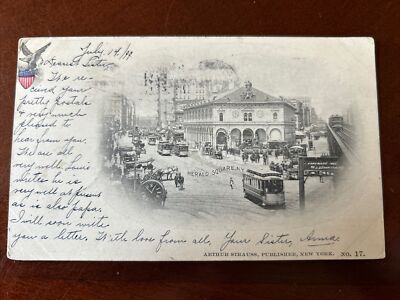 July. 14./99.
Dearest Sister,
We re-
ceived your
pretty Postals
& very much
pleased to
hear from you.
We are all
very well, Louis
writes he is
very well at present
as is also papa.
I will soon write
you a letter. With love from all, Your Sister, Anna
HERALD SQUARE, N.Y.
ARTHUR STRAUSS, PUBLISHER, NEW YORK. NO. 17.